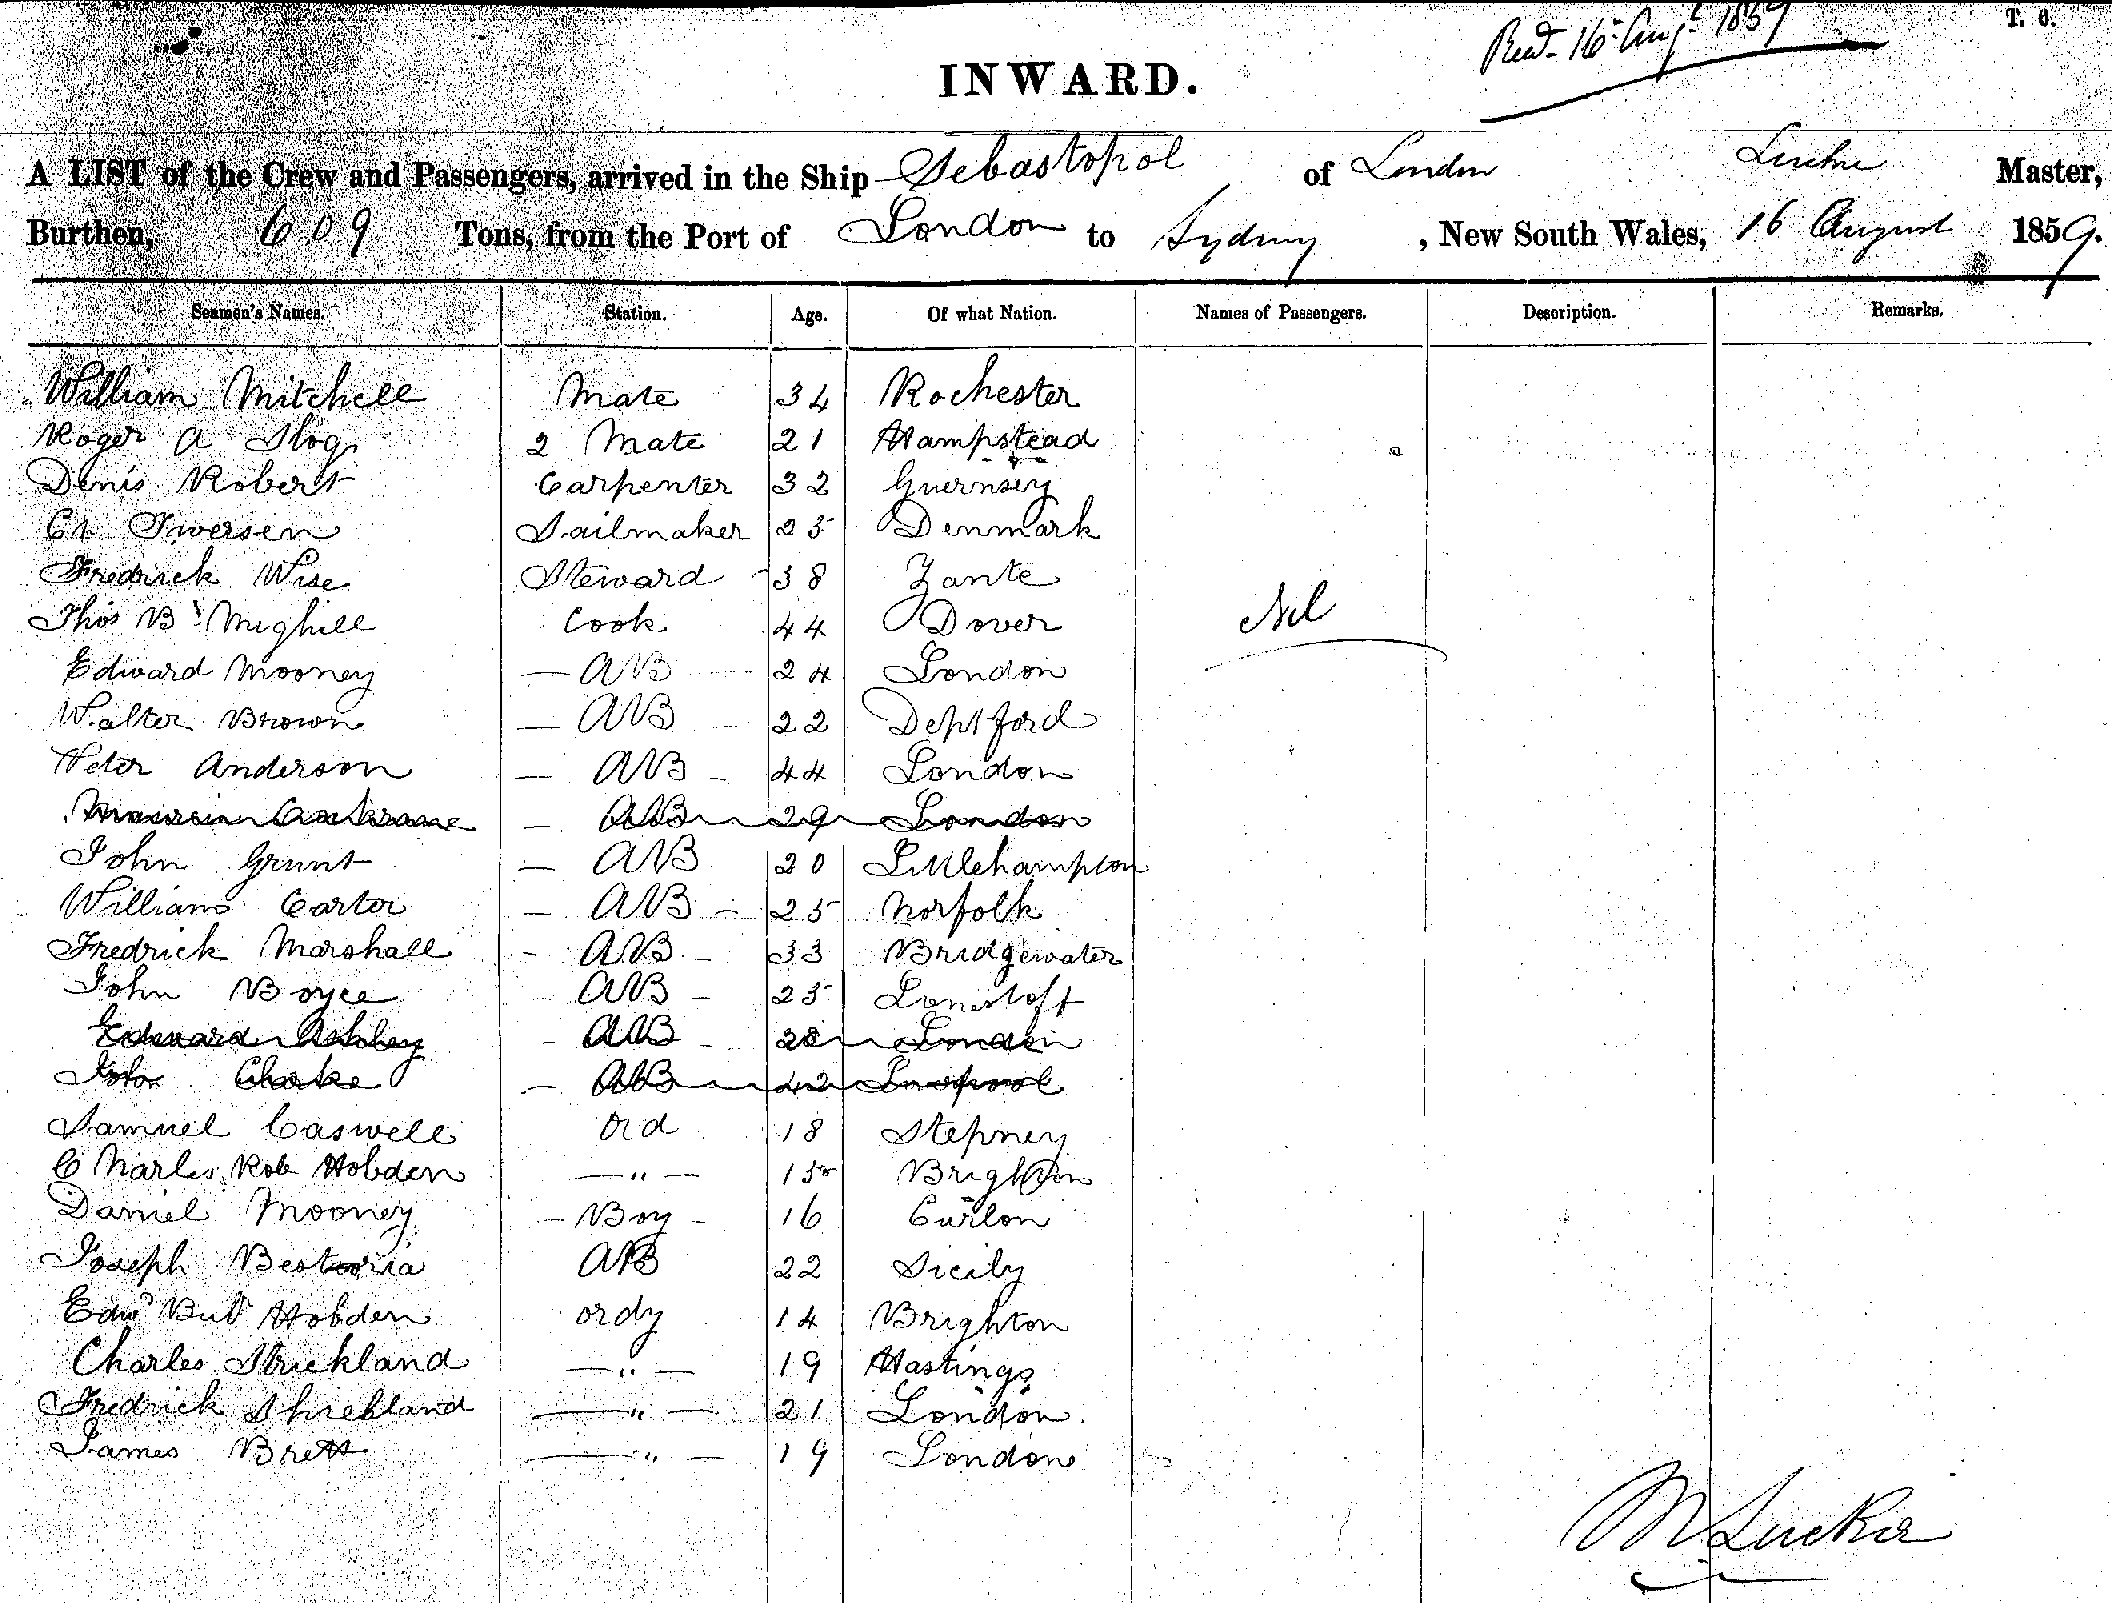 T. O.
Recd. 16 Augt 1859
INWARD.
A LIST of the Crew and Passengers, arrived in the Ship Sebastopol of London Luckie Master,
Burthen, 609 Tons, from the Port of London to Sydney, New South Wales, 16 August 1859.
Seamen's Names. Station. Age. Of what Nation. Names of Passengers. Description. Remarks.
William Mitchell Mate 34 Rochester
Roger A 2 Mate 21 Hampstead
Denis Robert Carpenter 32 Guernsey
Ch Iversen Sailmaker 25 Denmark
Fredrick Wise Steward 38 Zante
Thos B Mighill Cook 44 Dover Nil
Edward Mooney — AB — 24 London
Walter Brown — AB — 22 Deptford
Peter Anderson — AB — 44 London
— AB 29 London
John Grunt — AB 20 Littlehampton
William Carter — AB — 25 Norfolk
Fredrick Marshall - AB - 33 Bridgewater
John Boyce AB - 25 Lowestoft
Edward Ashby - AB - 28 London
John Clarke - AB 42 Liverpool
Samuel Caswell Ord 18 Stepney
Charles Rob Hobden — " — 15 Brighton
Daniel Mooney - Boy - 16
Joseph AB 22 Sicily
Edwd Hobden ordy 14 Brighton
Charles Strickland — " — 19 Hastings
Fredrick Strickland — " — 21 London.
James Brett — " — 19 London